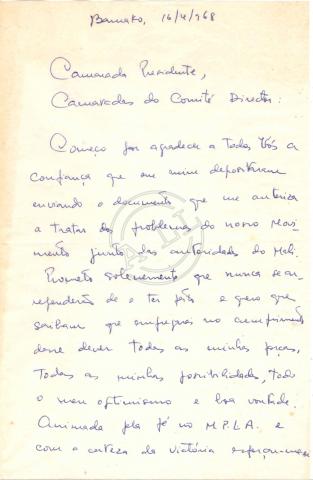 Bamako, 16/4/968
Camarada Presidente,
Camaradas do Comité Director:
Começo por agradecer a todos Vós a
confiança que em mim depositaram
enviando o documento que me autoriza
a tratar dos problemas do nosso Movi-
mento junto das autoridades do Mali.
Prometo solenemente que nunca se ar-
rependerão de o ter feito e quero que
saibam que empregarei no cumprimento
desse dever todas as minhas forças,
todas as minhas possibilidades, todo
o meu optimismo e boa vontade.
Animada pela fé no M.P.L.A. e
com a certeza da vitória esforçar-me-ei